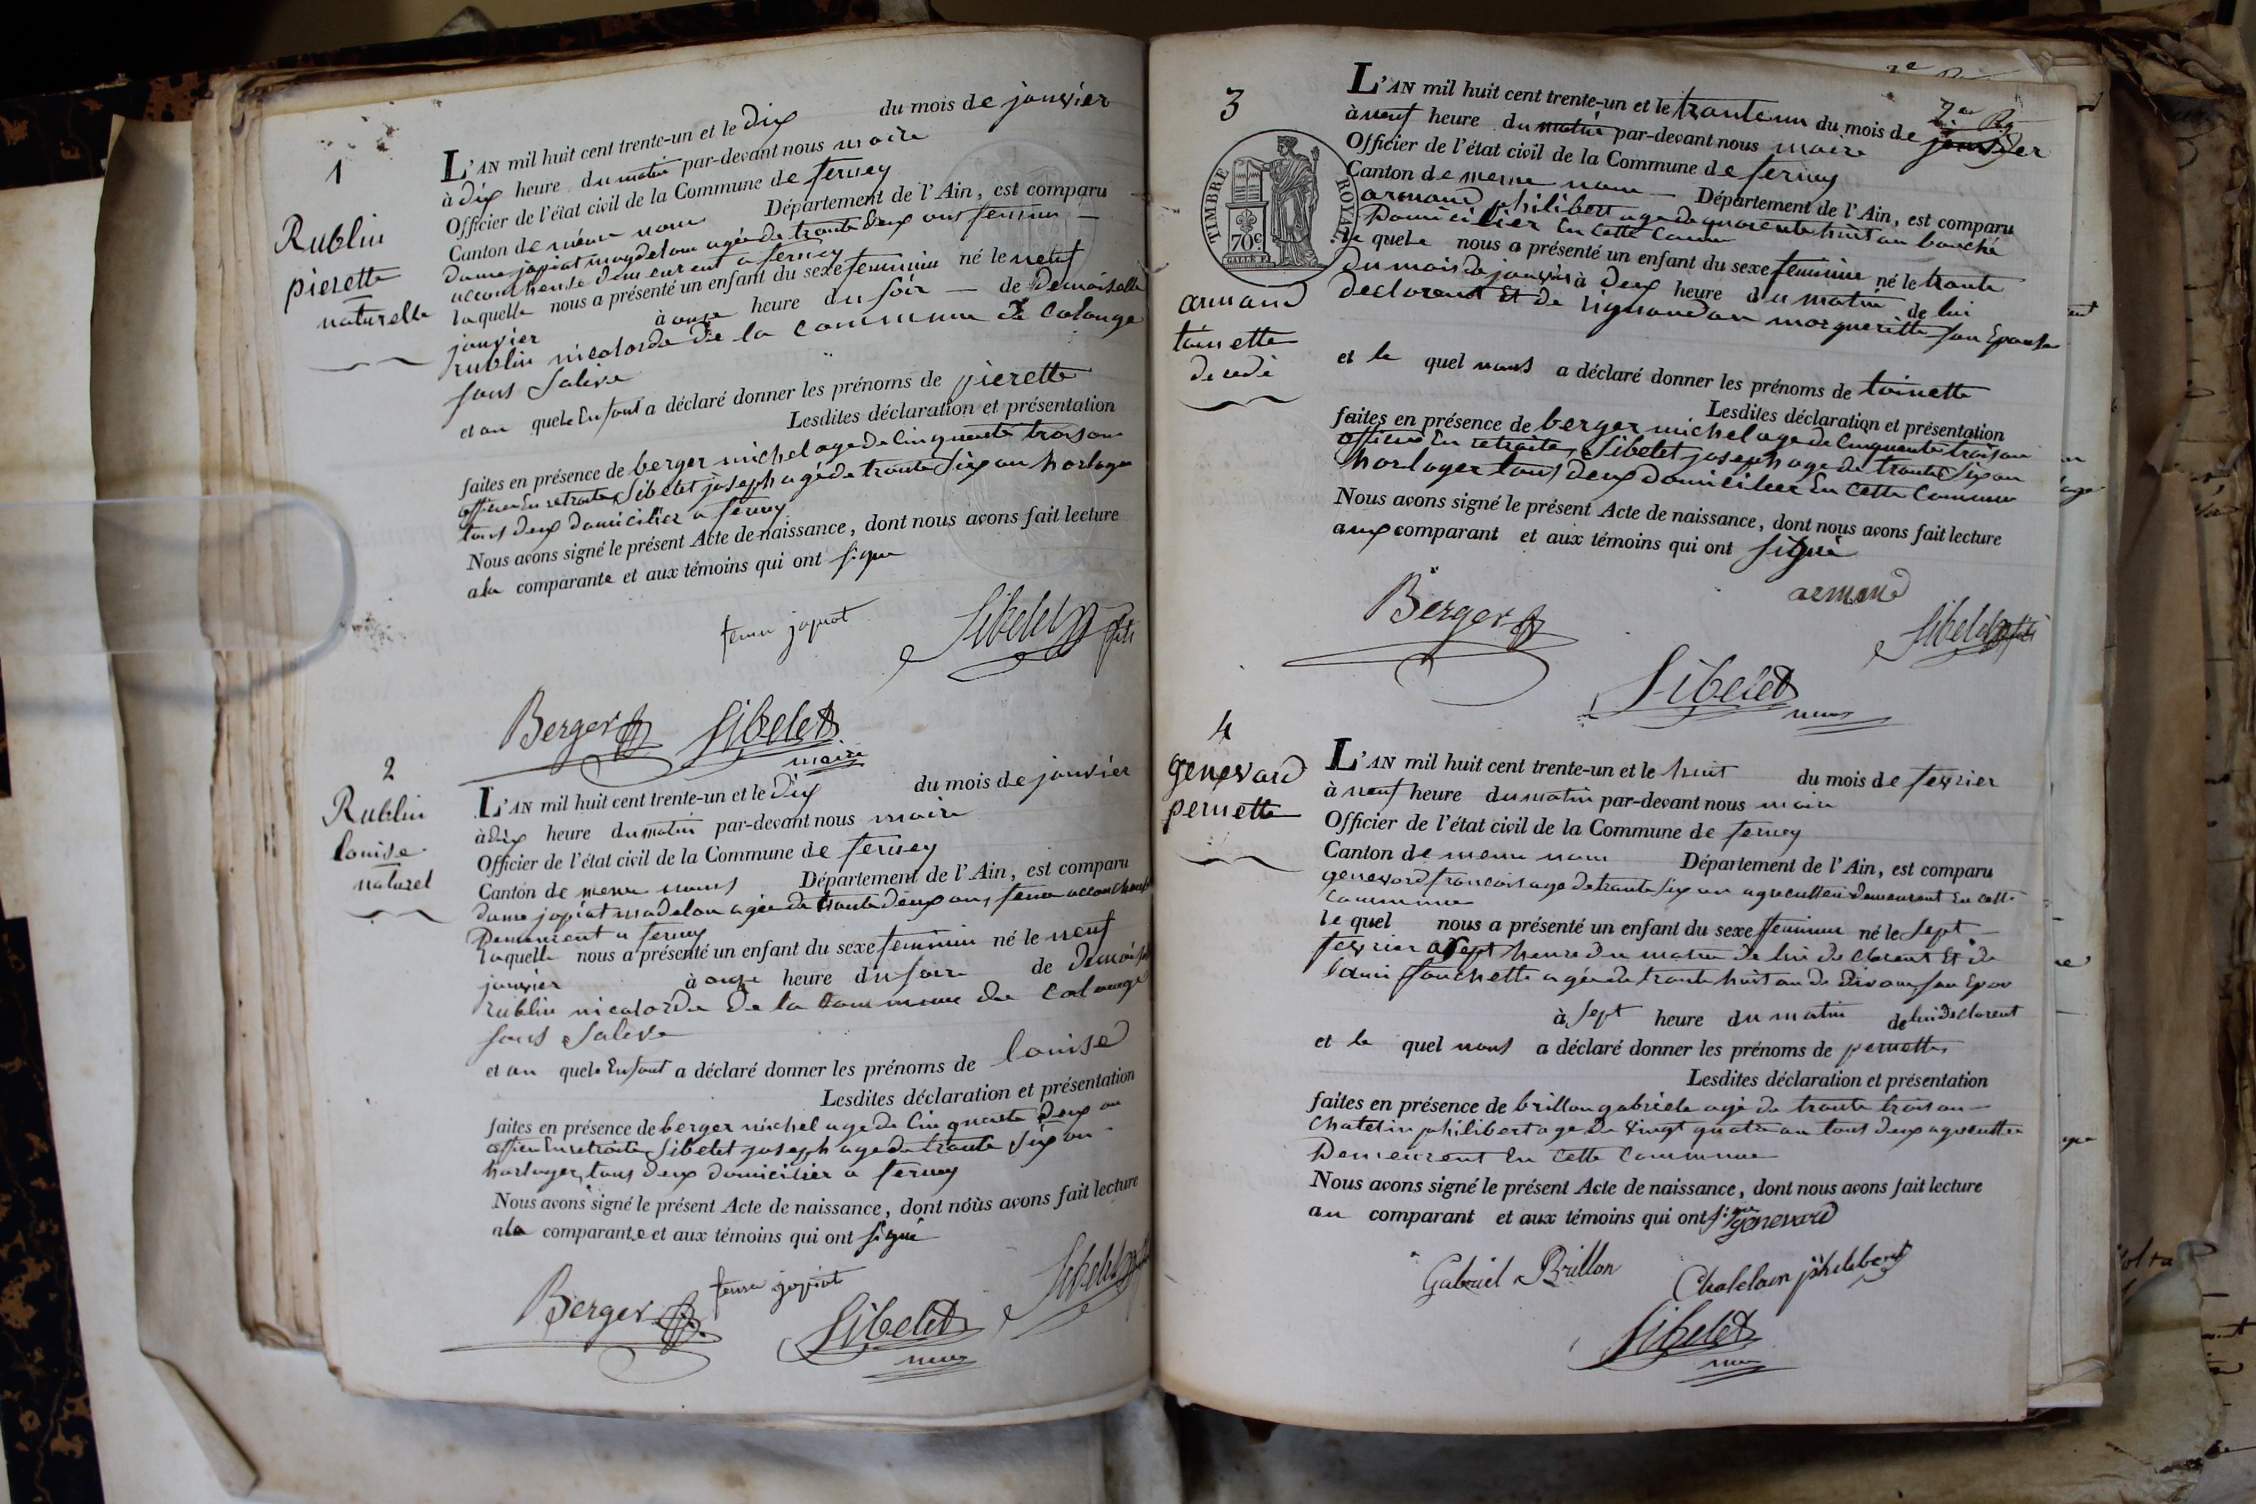 1
Rublin
pierette
naturelle
L'AN mil huit cent trente-un et le dix du mois de janvier
à dix heure du matin par-devant nous maire
Officier de l'état civil de la Commune de ferney
Canton de même nom Département de l'Ain, est comparu
dame jopiat magdelon agée de trante deux ans femme
accoucheuse demeurent a ferney
laquelle nous a présenté un enfant du sexe feminin né le neuf
janvier à onze heure du soir de demoiselle
rublin nicolarde de la commune de Colonge
sous Saleve
et au quele Enfant a déclaré donner les prénoms de pierette
Lesdites déclaration et présentation
faites en présence de berger michel age de Cinquante trois an
officier En retraite, Sibelet joseph agé de trante Six an horloger
tous deux domicilier a ferney
Nous avons signé le présent Acte de naissance, dont nous avons fait lecture
ala comparante et aux témoins qui ont signe
femme jopiat Sibelet fils
Berger Sibelet
maire
2
Rublin
louise
naturel
L'AN mil huit cent trente-un et le dix du mois de janvier
à dix heure du matin par-devant nous maire
Officier de l'état civil de la Commune de ferney
Canton de meme nom Département de l'Ain, est comparu
dame jopiat madelon agée de trante deux ans, feme accoucheuse
Demeurent a ferney
laquelle nous a présenté un enfant du sexe feminin né le neuf
janvier à onze heure du soir de demoiselle
rublin nicolarde De la Commune de Colonge
sous Saleve
et au quele Enfant a déclaré donner les prénoms de louise
Lesdites déclaration et présentation
faites en présence de berger michel age de Cinquante deux an
officier En retraite, Sibelet joseph age de trante Six an
horloger, tous deux domicilier a ferney
Nous avons signé le présent Acte de naissance, dont nous avons fait lecture
ala comparante et aux témoins qui ont signé
Berger feme jopiat Sibelet
Sibelet
maire
3
TIMBRE ROYAL
70 c
armand
toinette
decedé
2e Rg
L'AN mil huit cent trente-un et le tranteun du mois de janvier
à neuf heure du matin par-devant nous maire
Officier de l'état civil de la Commune de ferney
Canton de meme nom Département de l'Ain, est comparu
armand philibert age de quarente huit an bouché
Domicilier En cette Comune
le quele nous a présenté un enfant du sexe feminin né le trante
du mois de janvier à deux heure du matin de lui
declorent Et de margueritte son Epouse
et le quel nous a déclaré donner les prénoms de toinette
Lesdites déclaration et présentation
faites en présence de berger michel age de Cinquante trois an
officier En retraite, Sibelet joseph age de trante Six an
horloger tous deux domicilier En cette Commune
Nous avons signé le présent Acte de naissance, dont nous avons fait lecture
aux comparant et aux témoins qui ont signé
armand
Berger Sibelet fils
Sibelet
maire
4
genevard
pernette
L'AN mil huit cent trente-un et le huit du mois de fevrier
à neuf heure du matin par-devant nous maire
Officier de l'état civil de la Commune de ferney
Canton de meme nom Département de l'Ain, est comparu
genevard francois age de trante Six an agreculteur demeurent En cette
Commune
le quel nous a présenté un enfant du sexe feminin né le Sept
fevrier a Sept heure du matin de lui declorent Et de
fanchette agée de trante huit an de Divonne, son Epou
à Sept heure du matin de lui declorent
et le quel nous a déclaré donner les prénoms de pernette
Lesdites déclaration et présentation
faites en présence de brillon gabriele agé de trante trois an
Chatelin philibert age de vingt quatre an tous deux agreculteu
Demeurent En cette Commune
Nous avons signé le présent Acte de naissance, dont nous avons fait lecture
au comparant et aux témoins qui ont signe
genevard
Gabriel Brillon Chatelain philibert
Sibelet
maire